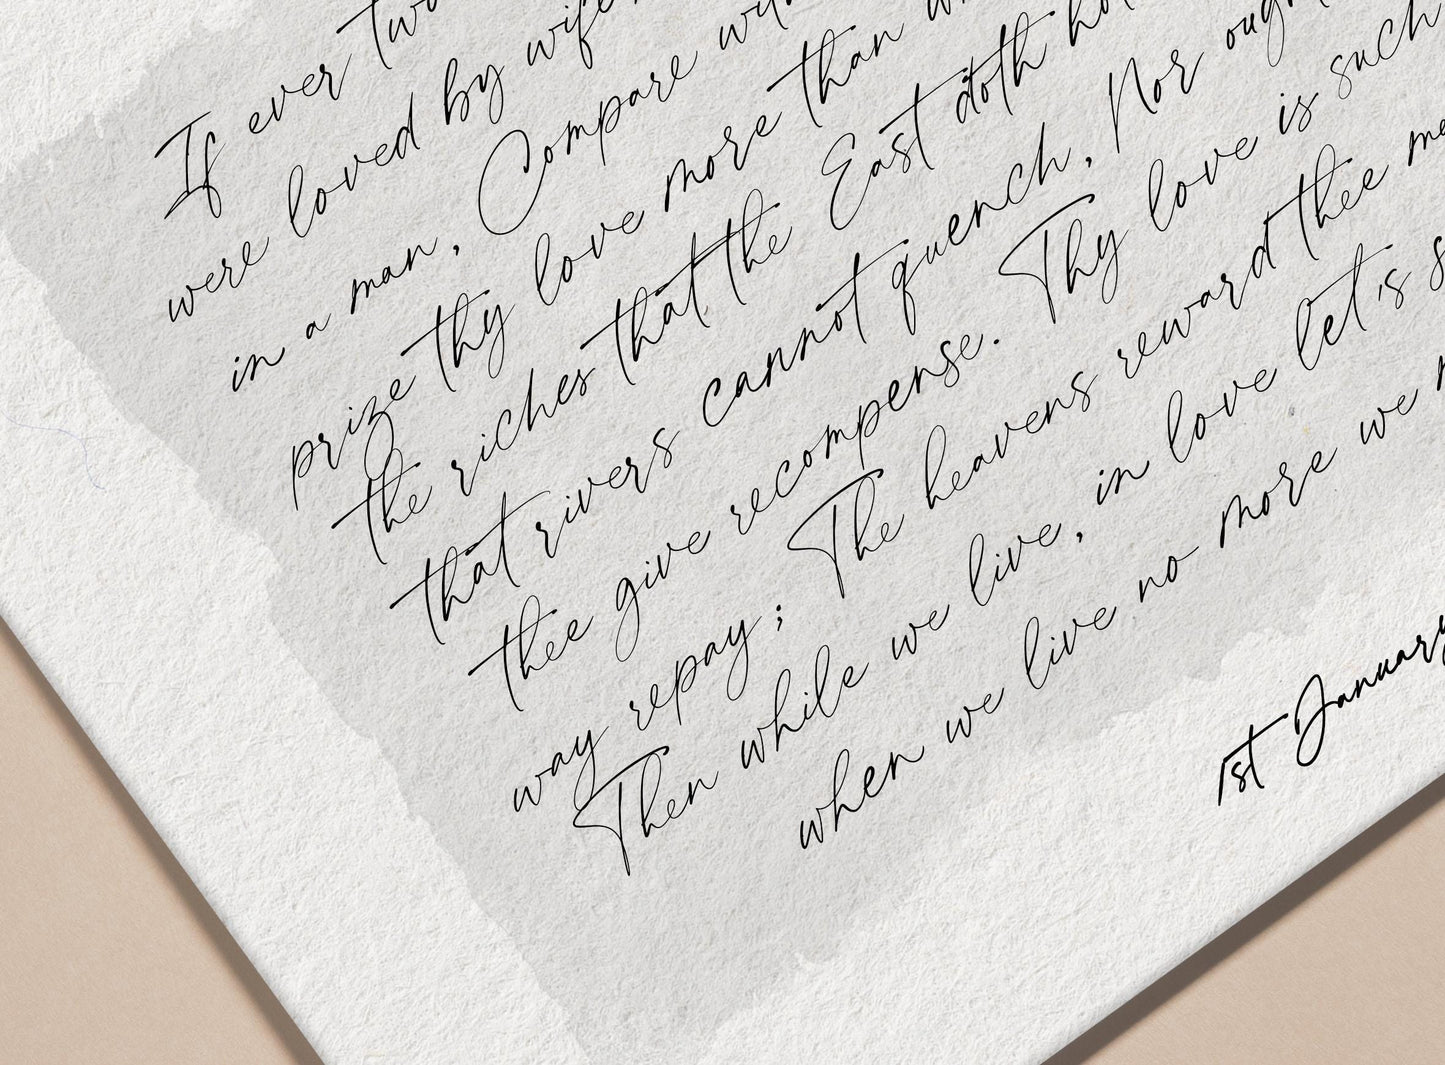 If ever two
were loved by wife
in a man, Compare
prize thy love more than
the riches that the East doth
that rivers cannot quench, Nor
thee give recompense. Thy love is such
way repay; The heavens reward thee
Then while we live, in love let's
when we live no more we
1st January